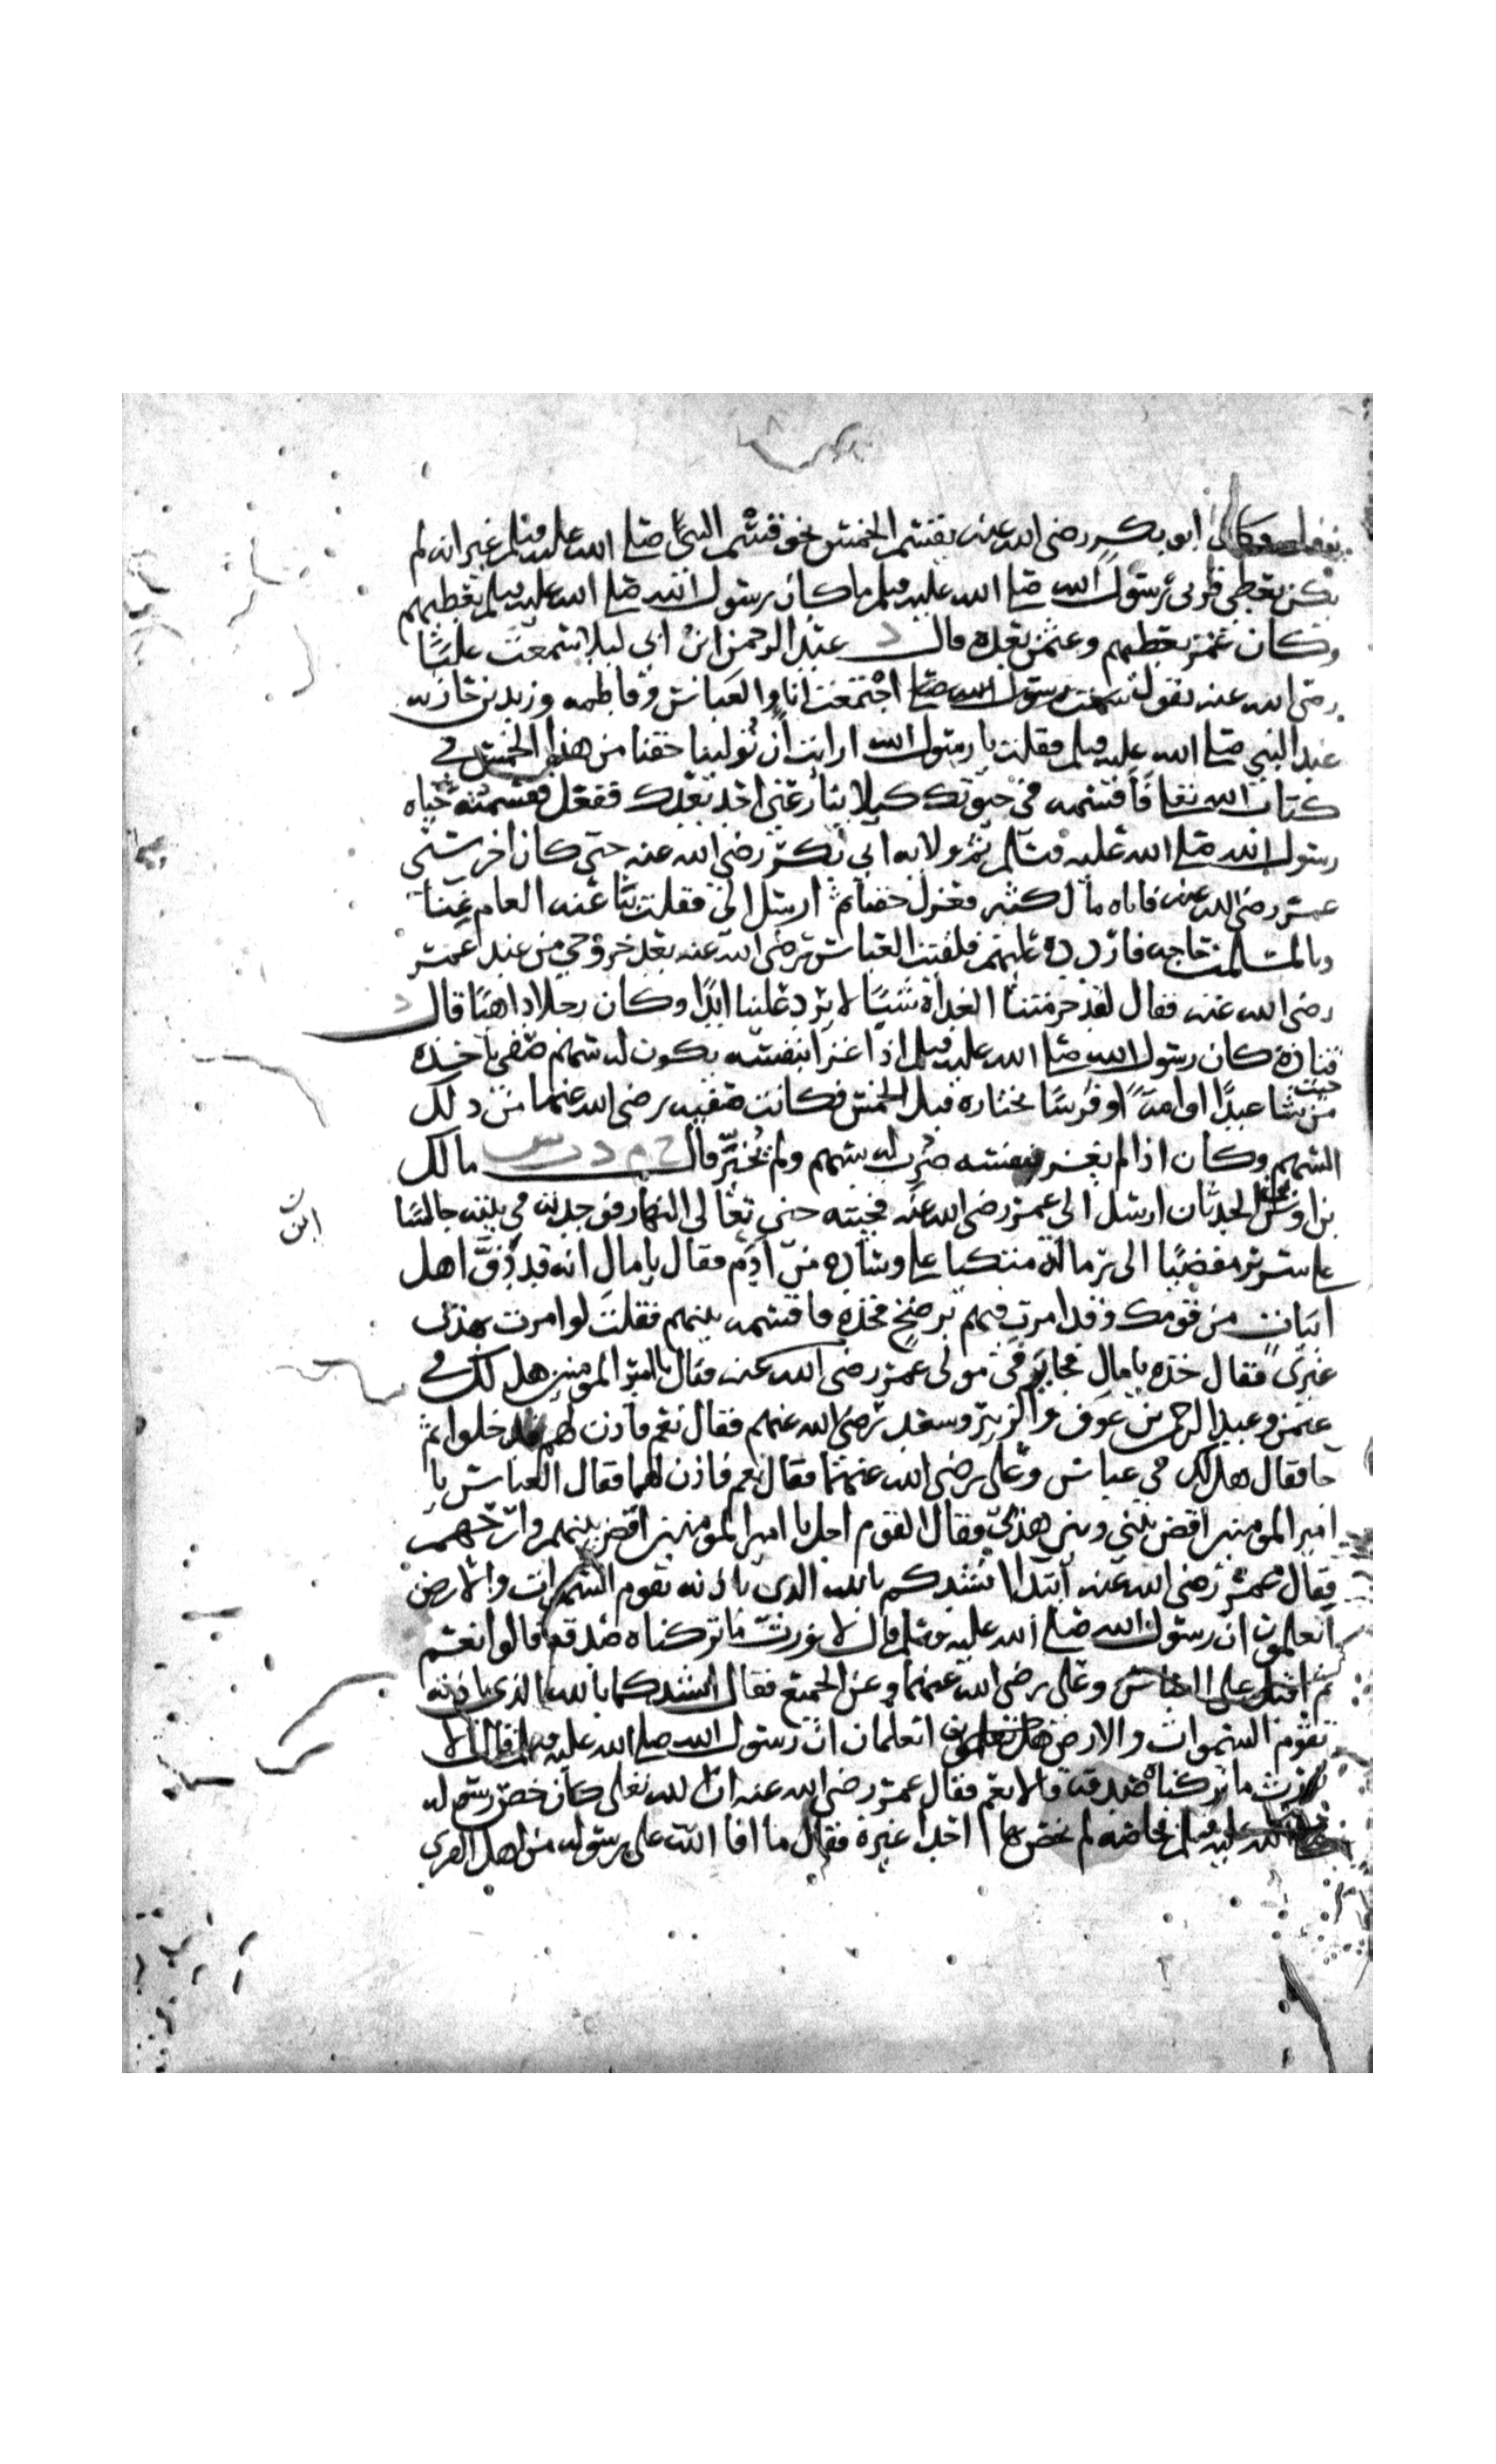 نوفل وكان ابو بكر رضي الله عنه يقسم الخمس نحو قسم النبي صلى الله عليه وسلم غير انه لم
يكن يعطي قربى رسول الله صلى الله عليه وسلم ما كان رسول الله صلى الله عليه وسلم يعطيهم
وكان عمر يعطيهم وعثمن بعده قال د عبد الرحمن ابن ابي ليلا سمعت عليا
رضي الله عنه يقول اجتمعت انا والعباس وفاطمه وزيد بن حارثه
عند النبي صلى الله عليه وسلم فقلت يا رسول الله ان رايت ان توليني حقنا من هذا الخمس في
كتاب الله تعا فاقسمه في حيوتك كيلا ينازعني احد بعدك ففعل فقسمته حياه
رسول الله صلى الله عليه وسلم ثم ولانيه ابي بكر رضي الله عنه حتى كان اخر سني
عمر رضي الله عنه فاتاه مال كثير فعزل حقنا ثم ارسل الي فقلت بنا عنه العام غنا
وبالمسلمين حاجه فاردده عليهم فلقيت العباس رضي الله عنه بعد خروجي من عند عمر
رضي الله عنه فقال لقد حرمتنا الغداة شيا لا يرد علينا ابدا وكان رجلا داهيا قال د
قتادة كان رسول الله صلى الله عليه وسلم اذا غزا بنفسه يكون له سهم صفي ياخذه
من حيث شا عبدا او امة او فرسا يختاره قبل الخمس فكانت صفيه رضي الله عنها من ذلك
السهم وكان اذا لم يغز بنفسه ضرب له بسهم ولم يخير قال خ م د ت س مالك
بن اوس بن الحدثان ارسل الي عمر رضي الله عنه فجيته حين تعالى النهار فوجدته في بيته جالسا
ابن
على سرير مفضيا الى رماله متكيا على وسادة من ادم فقال يا مال انه قد دف اهل
ابيات من قومك وقد امرت فيهم برضخ فخذه فاقسمه بينهم فقلت لو امرت بهذا
غيري فقال خذه يا مال فجا يرفي مولى عمر رضي الله عنه فقال يا امير المومنين هل لك في
عثمن وعبد الرحمن بن عوف والزبير وسعد رضي الله عنهم فقال نعم فاذن لهم فدخلوا ثم
جا فقال هل لك في عباس وعلي رضي الله عنهما فقال نعم فاذن لهما فقال العباس يا
امير المومنين اقض بيني وبين هذا فقال القوم اجل يا امير المومنين اقض بينهم وارحهم
فقال عمر رضي الله عنه اتيدا انشدكم بالله الذي باذنه تقوم السموات والارض
اتعلمون ان رسول الله صلى الله عليه وسلم قال لا نورث ما تركناه صدقة قالوا نعم
ثم اقبل على العباس وعلي رضي الله عنهما وعن الجميع فقال انشدكما بالله الذي باذنه
تقوم السموات والارض اتعلمان ان رسول الله صلى الله عليه وسلم قال لا
نورث ما تركناه صدقة قالا نعم فقال عمر رضي الله عنه ان الله تعلى كان خص رسوله
صلى الله عليه وسلم بخاصه لم يخص بها احدا غيره فقال ما افا الله على رسوله من اهل القرى